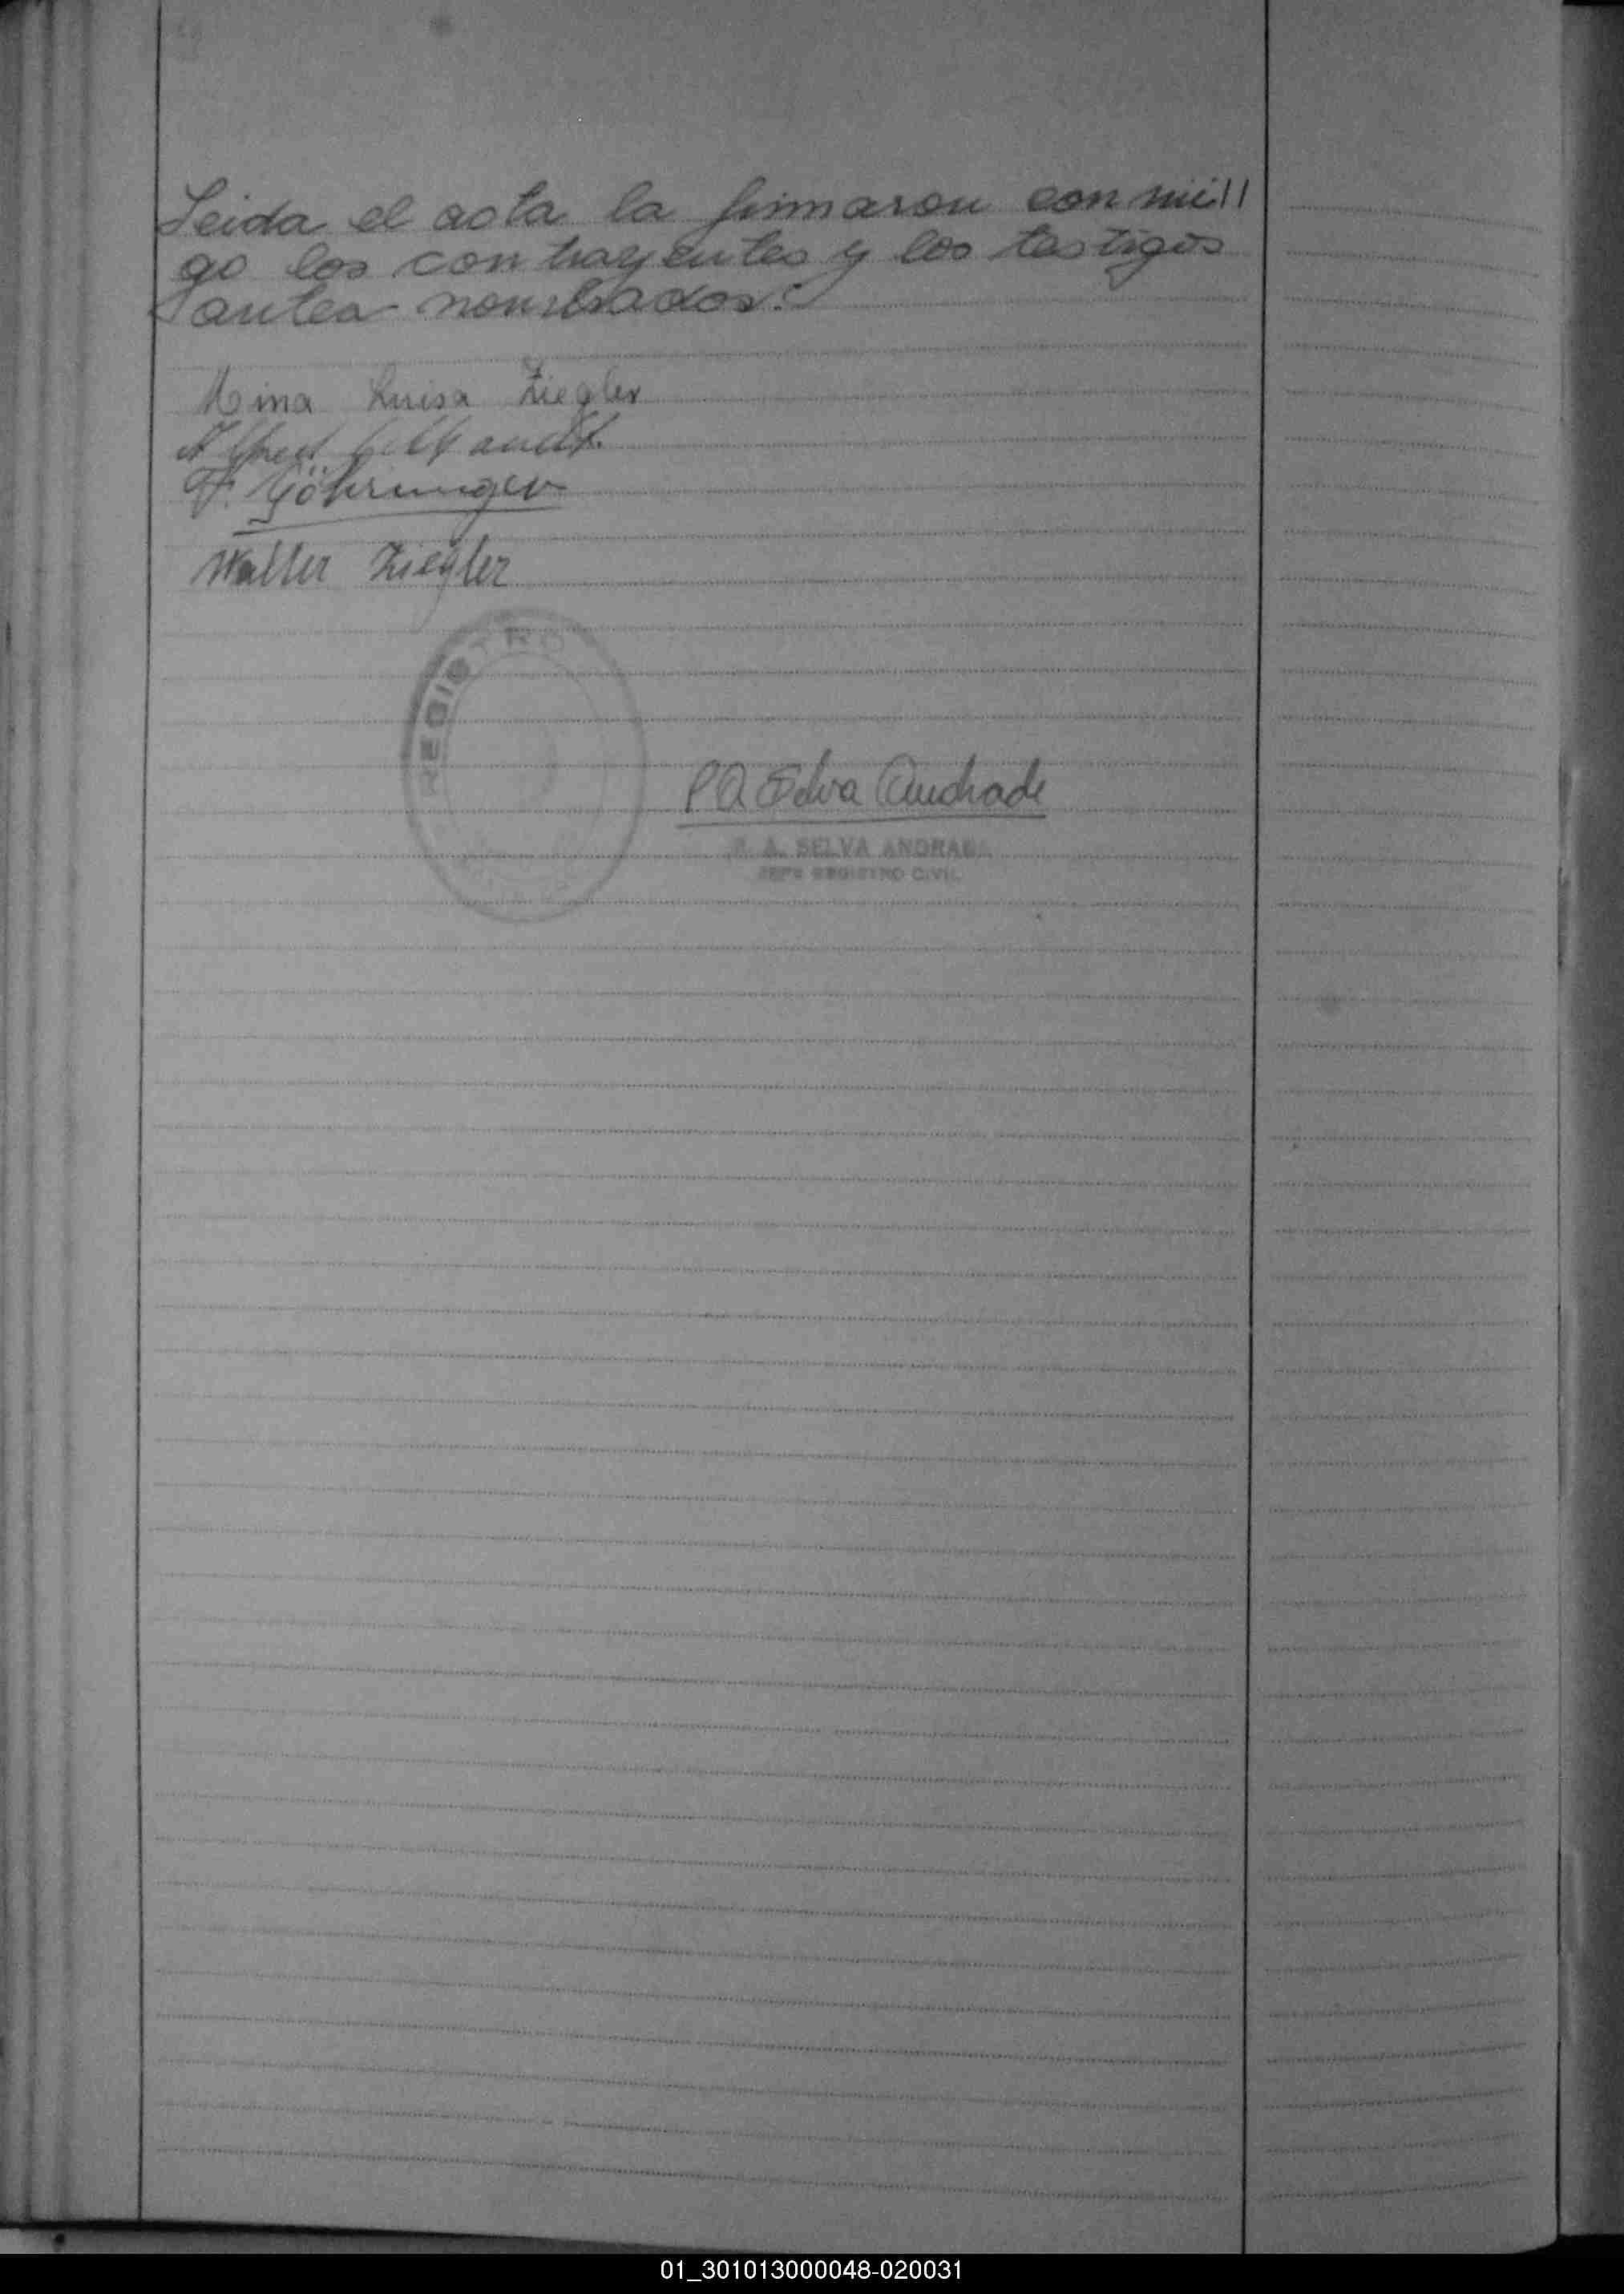 Leida el acta la firmaron con mi//
go los contrayentes y los testigos
antes nombrados:
Mina Luisa Ziegler
Alfred
F. Göhringer
Walter Ziegler
REGISTRO
P A Selva Andrade
P. A. SELVA ANDRADE
JEFE REGISTRO CIVIL
01_301013000048-020031